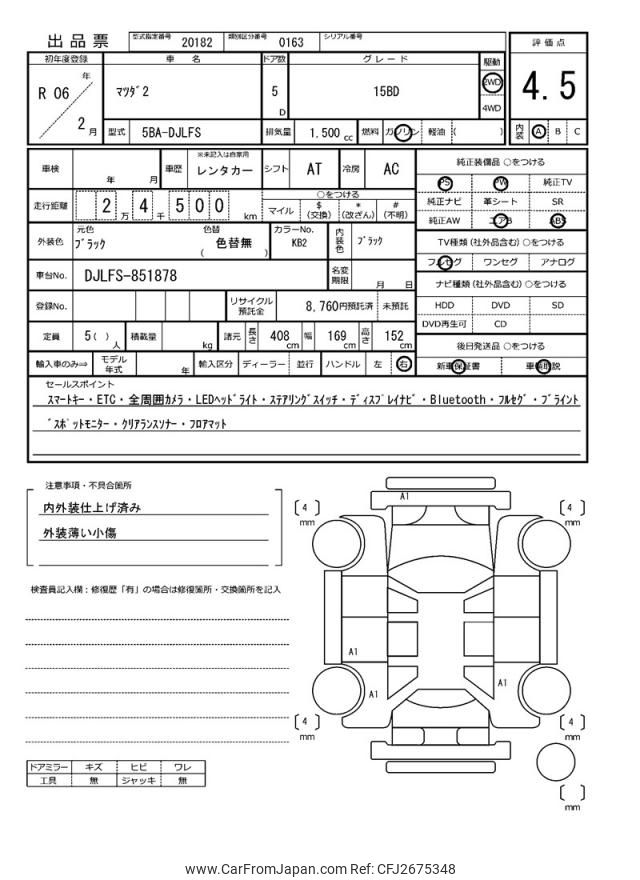 出品票 型式指定番号 20182 類別区分番号 0163 シリアル番号
初年度登録 車名 ドア数 グレード 駆動 評価点
R 06 年 2 月 マツダ2 5 D 15BD 2WD 4WD 4.5
型式 5BA-DJLFS 排気量 1.500 cc 燃料 ガソリン 軽油 ( ) 内装 A B C
車検 年 月 車歴 ※未記入は自家用 レンタカー シフト AT 冷房 AC
走行距離 2 万 4 千 5 0 0 km
○をつける
マイル $ (交換) * (改ざん) # (不明)
外装色 元色 ブラック 色替 色替無 ( ) カラーNo. KB2 内装色 ブラック
車台No. DJLFS-851878 名変期限 月 日
登録No. リサイクル預託金 8,760円預託済 未預託
定員 5( ) 人 積載量 kg 諸元 長さ 408 cm 幅 169 cm 高さ 152 cm
輸入車のみ⇒ モデル年式 年 輸入区分 ディーラー 並行 ハンドル 左 右
純正装備品 ○をつける
PS PW 純正TV
純正ナビ 革シート SR
純正AW エアB ABS
TV種類(社外品含む)○をつける
フルセグ ワンセグ アナログ
ナビ種類(社外品含む)○をつける
HDD DVD SD
DVD再生可 CD
後日発送品 ○をつける
新車保証書 車輌取説
セールスポイント
スマートキー・ETC・全周囲カメラ・LEDヘッドライト・ステアリングスイッチ・ディスプレイナビ・Bluetooth・フルセグ・ブライント
゛スポットモニター・クリアランスソナー・フロアマット
注意事項・不具合箇所
内外装仕上げ済み
外装薄い小傷
検査員記入欄:修復歴「有」の場合は修復箇所・交換箇所を記入
A1
[ 4 ] mm
[ 4 ] mm
A1
A1
A1
[ 4 ] mm
[ 4 ] mm
[ ] mm
ドアミラー キズ ヒビ ワレ
工具 無 ジャッキ 無
www.CarFromJapan.com Ref: CFJ2675348